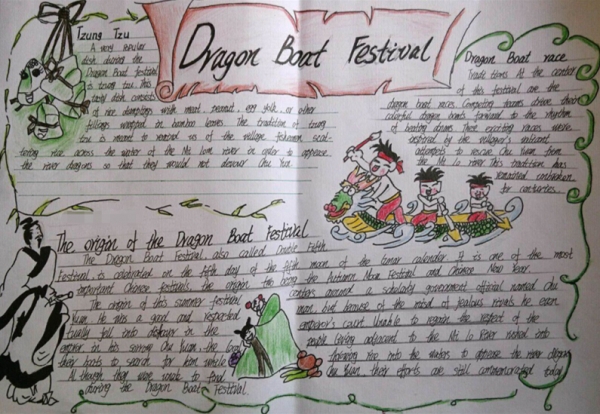 Dragon Boat Festival
Tzung Tzu
A very popular
dish during the
Dragon Boat festival
is tzung tzu. This
tasty dish consists
of rice dumplings with meat, peanut, egg yolk, or other
fillings wrapped in bamboo leaves. The tradition of tzung
tzu is meant to remind us of the village fishermen scat-
tering rice across the water of the Mi Low river in order to appease
the river dragons so that they would not devour Chu Yuan.
Dragon Boat race
Traditions At the center
of this festival are the
dragon boat races. Competing teams drive their
colorful dragon boats forward to the rhythm
of beating drums These exciting races were
inspired by the villager's valiant
attempts to rescue Chu Yuan from
the Mi Lo river This tradition has
remained unbroken
for centuries.
The origin of the Dragon Boat Festival
The Dragon Boat Festival, also called Double Fifth
Festival is celebrated on the fifth day of the fifth moon of the lunar calendar. It is one of the most
important Chinese festivals, the Autumn Moon Festival and Chinese New Year.
The origin of this summer festival centers around a scholarly government official named Chu
Yuan. He was a good and respected man, but because of the jealous rivals he
fell into disfavor in the emperor's court. Unable to regain the respect of the
emperor in his sorrow Chu Yuan the Mi Lo River rushed into
their boats to search for him while throwing rice into the waters to appease the river dragons
Although they were unable to find Chu Yuan, their efforts are still commemorated today
during the Dragon Boat Festival